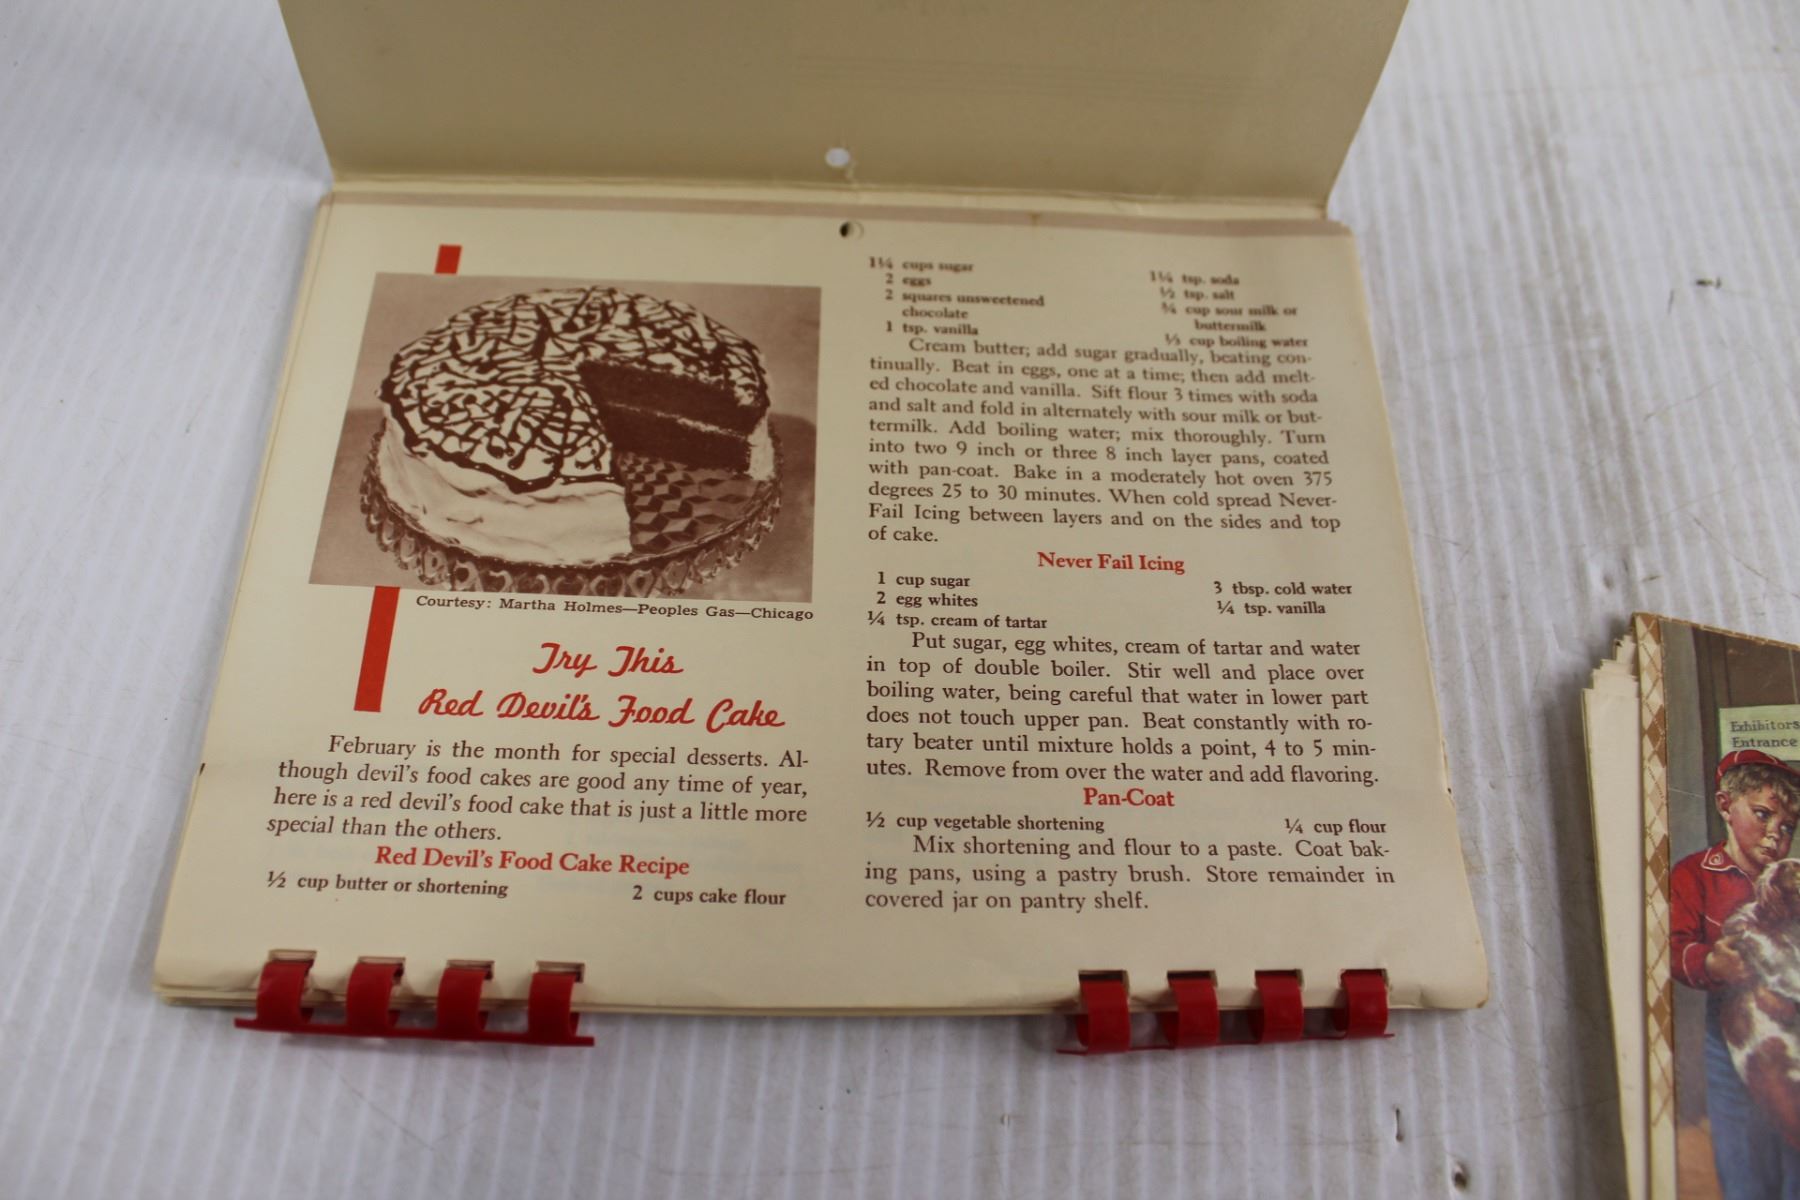 Courtesy: Martha Holmes—Peoples Gas—Chicago
Try This
Red Devil's Food Cake
February is the month for special desserts. Al-
though devil's food cakes are good any time of year,
here is a red devil's food cake that is just a little more
special than the others.
Red Devil's Food Cake Recipe
½ cup butter or shortening 2 cups cake flour
1¼ cups sugar 1¼ tsp. soda
2 eggs ½ tsp. salt
2 squares unsweetened ¾ cup sour milk or
chocolate buttermilk
1 tsp. vanilla ⅓ cup boiling water
Cream butter; add sugar gradually, beating con-
tinually. Beat in eggs, one at a time; then add melt-
ed chocolate and vanilla. Sift flour 3 times with soda
and salt and fold in alternately with sour milk or but-
termilk. Add boiling water; mix thoroughly. Turn
into two 9 inch or three 8 inch layer pans, coated
with pan-coat. Bake in a moderately hot oven 375
degrees 25 to 30 minutes. When cold spread Never-
Fail Icing between layers and on the sides and top
of cake.
Never Fail Icing
1 cup sugar 3 tbsp. cold water
2 egg whites ¼ tsp. vanilla
¼ tsp. cream of tartar
Put sugar, egg whites, cream of tartar and water
in top of double boiler. Stir well and place over
boiling water, being careful that water in lower part
does not touch upper pan. Beat constantly with ro-
tary beater until mixture holds a point, 4 to 5 min-
utes. Remove from over the water and add flavoring.
Pan-Coat
½ cup vegetable shortening ¼ cup flour
Mix shortening and flour to a paste. Coat bak-
ing pans, using a pastry brush. Store remainder in
covered jar on pantry shelf.
Exhibitors
Entrance